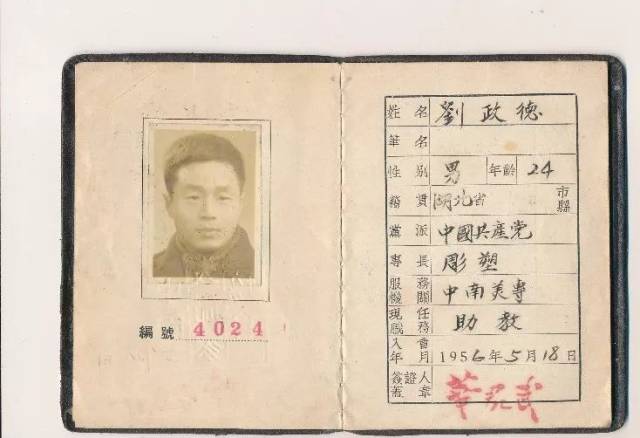 編號 4024
姓名 劉政德
筆名
性别 男 年齡 24
籍貫 湖北省 市縣
黨派 中國共産党
專長 彫塑
服務機關 中南美專
現任職務 助教
入會年月 1956年5月18日
簽證人蓋章